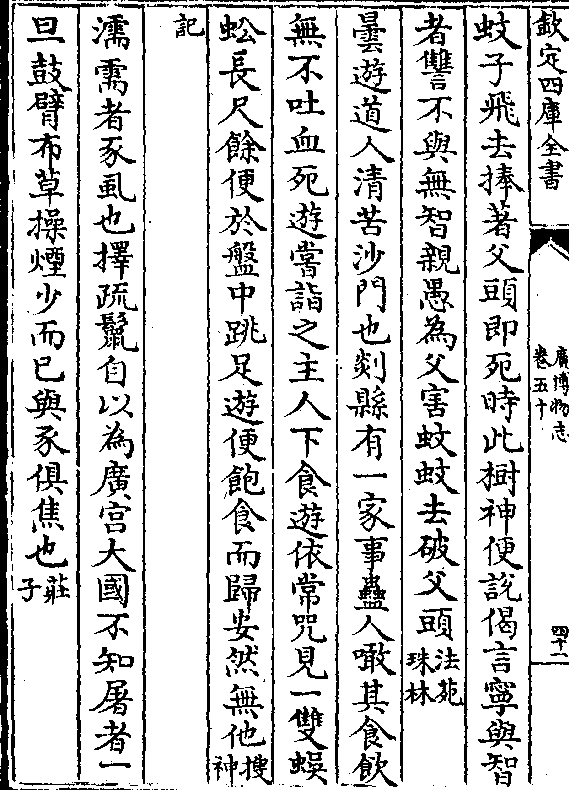 欽定四庫全書
廣博物志
卷五十
四十一
蚊子飛去捧著父頭即死時此樹神便説偈言寧與智
者讐不與無智親愚為父害蚊蚊去破父頭法苑
珠林
曇遊道人清苦沙門也剡縣有一家事蠱人噉其食飲
無不吐血死遊嘗詣之主人下食遊依常咒見一雙蜈
蚣長尺餘便於盤中跳足遊便飽食而歸安然無他搜
神
記
濡需者豕虱也擇疏鬣自以為廣宫大國不知屠者一
旦鼓臂布草操煙少而已與豕俱焦也莊
子